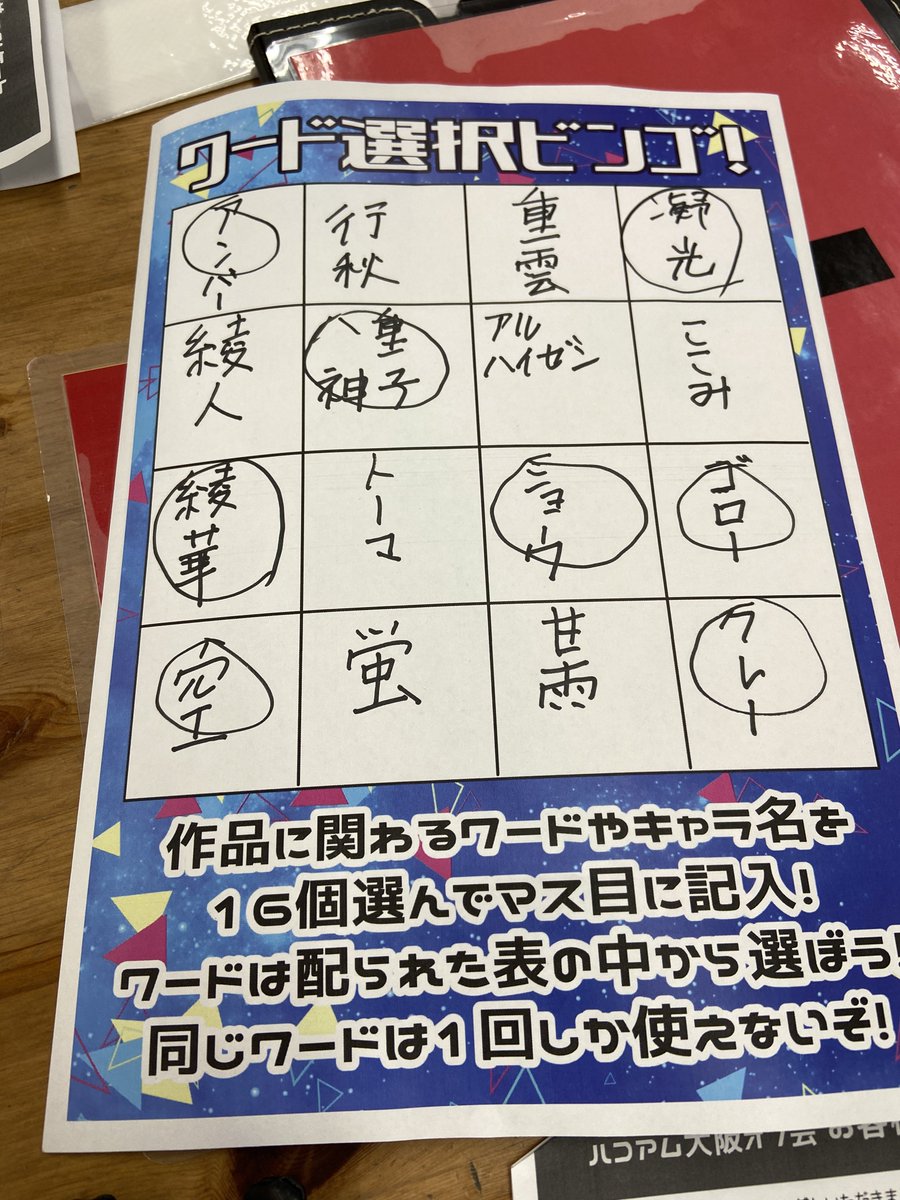 ワード選択ビンゴ!
アンバー
行秋
重雲
凝光
綾人
八重
神子
アル
ハイゼン
ここみ
綾華
トーマ
ショウ
ゴロー
空
蛍
甘雨
クレー
作品に関わるワードやキャラ名を
16個選んでマス目に記入!
ワードは配られた表の中から選ぼう!
同じワードは1回しか使えないぞ!